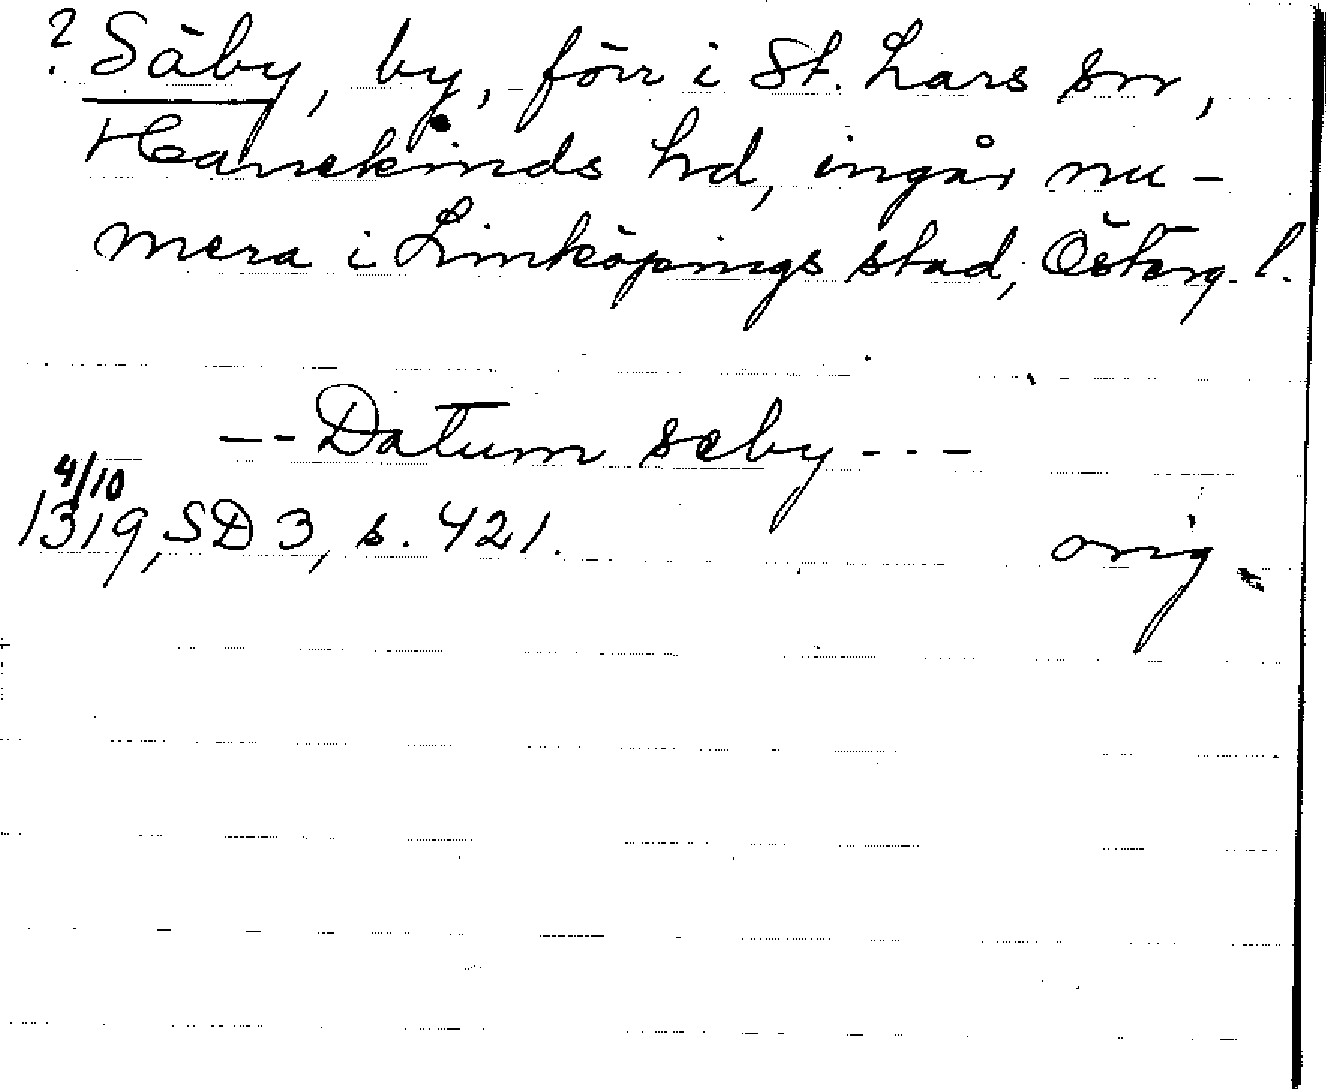 ? Säby, by, förr i St. Lars sn,
Hanekinds hd, ingår nu-
mera i Linköpings stad, Österg. l.
-- Datum seby ---
4/10
1319, SD 3, s. 421.
orig.